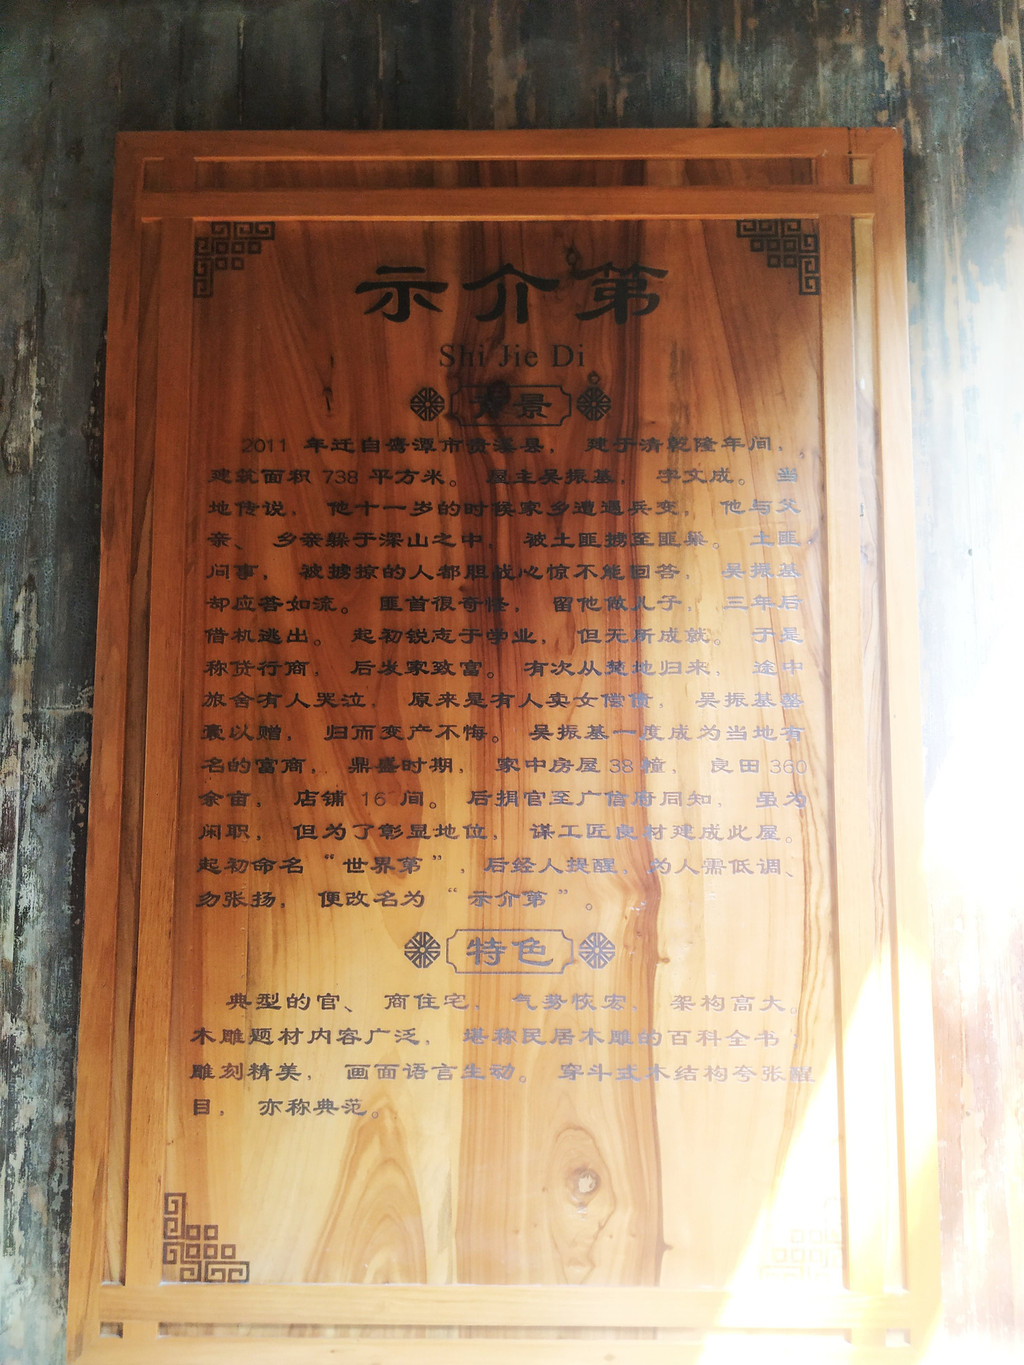 示介第
Shi Jie Di
背景
2011 年迁自鹰潭市贵溪县，建于清乾隆年间，
建筑面积 738 平方米。屋主吴振基，字文成。当
地传说，他十一岁的时候家乡遭遇兵变，他与父
亲、乡亲躲于深山之中，被土匪掳至匪巢。土匪
问事，被掳掠的人都胆战心惊不能回答，吴振基
却应答如流。匪首很奇怪，留他做儿子，三年后
借机逃出。起初锐志于学业，但无所成就。于是
称贷行商，后发家致富。有次从楚地归来，途中
旅舍有人哭泣，原来是有人卖女偿债，吴振基罄
囊以赠，归而变产不悔。吴振基一度成为当地有
名的富商，鼎盛时期，家中房屋 38 幢，良田 360
余亩，店铺 16 间。后捐官至广信府同知，虽为
闲职，但为了彰显地位，谋工匠良材建成此屋。
起初命名“世界第”，后经人提醒，为人需低调、
勿张扬，便改名为“示介第”。
特色
典型的官、商住宅，气势恢宏，架构高大。
木雕题材内容广泛，堪称民居木雕的百科全书，
雕刻精美，画面语言生动。穿斗式木结构夸张醒
目，亦称典范。